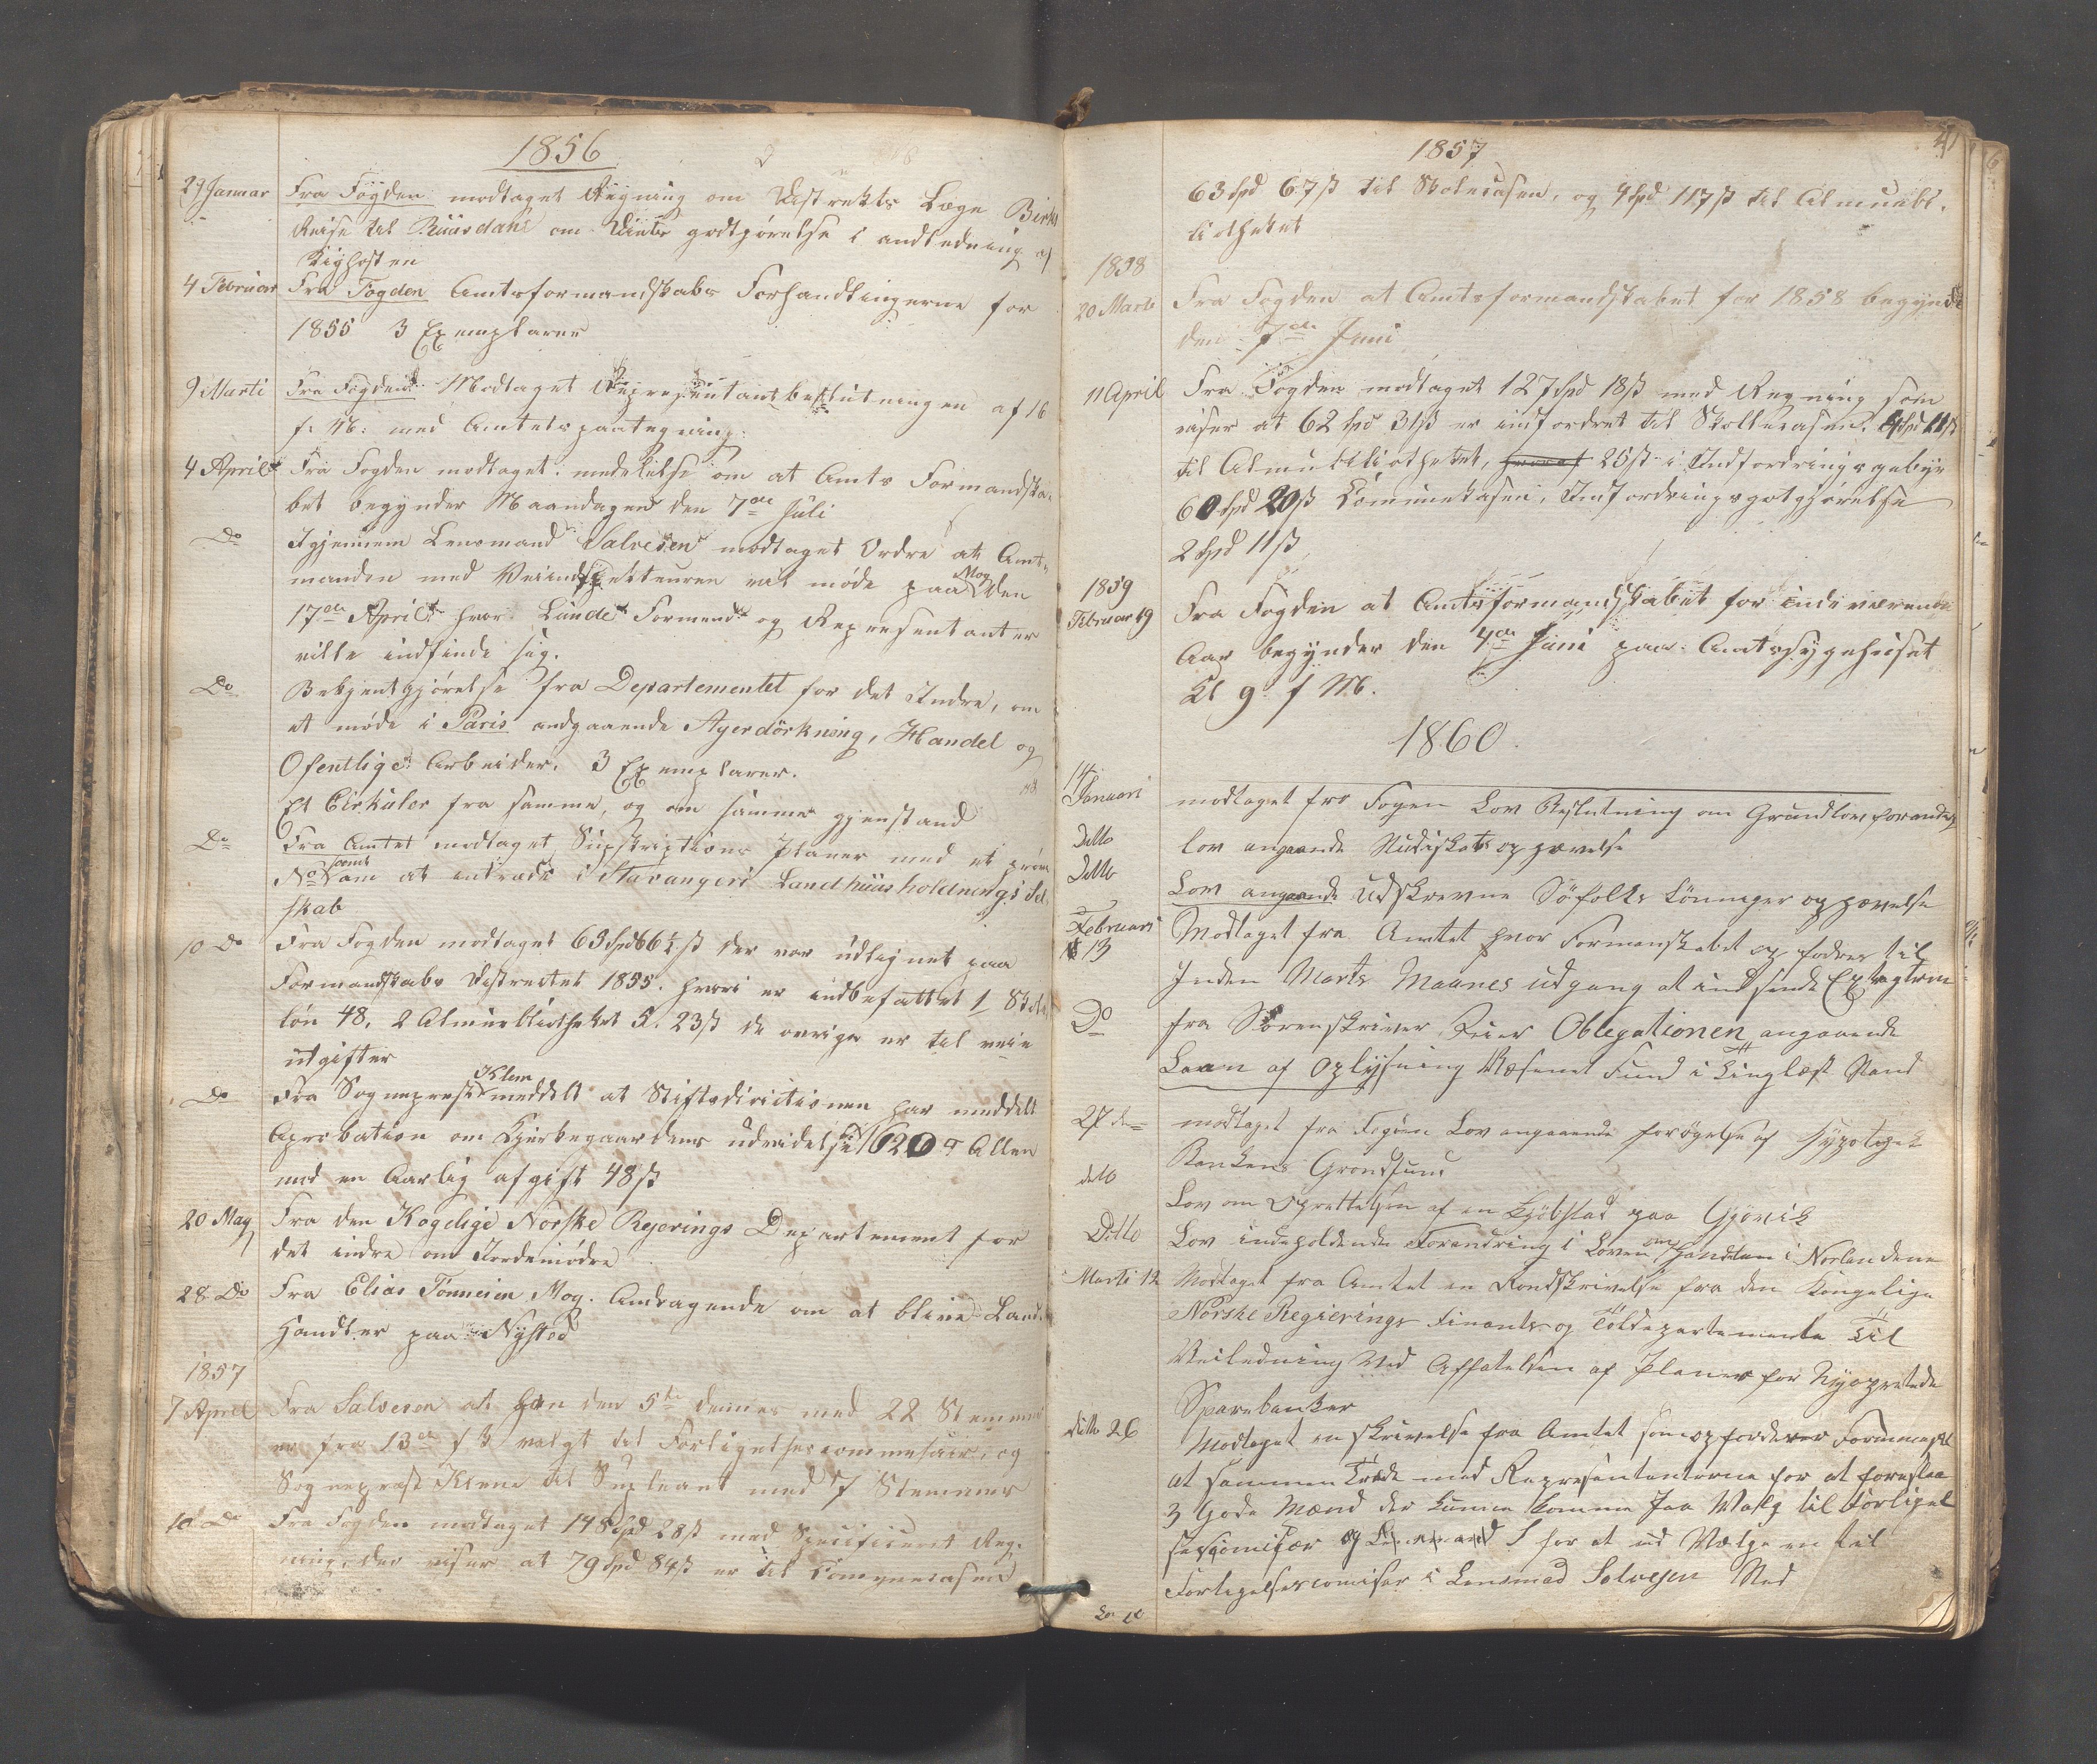 1856
29 Januar Fra Fogden modtaget Regning om Distrekts Læge Birks
Reise til Ruusdahl om Diæts godtgørelse i andledning af
Kighosten
4 Februar Fra Fogden Amtsformandskabs Forhandlingerne for
1855 3 Exemplarer
9 Marti Fra Fogden Modtaget Representantbeslutningen af 16
f. M: med Amtets paategning.
4 April Fra Fogden modtaget medelelse om at Amts Formandska-
bet begynder Maandagen den 7de Juli
Do Igjennem Lensmand Salvesen modtaget Ordre at Amt-
manden med Veiinspekteuren vil møde paa Mog den
17de April hvor Lunde Formend og Representanter
ville indfinde sig.
Do Bekjentgjørelse fra Departementet for det Indre, om
et møde i Paris andgaaende Agerdørkning, Handel og
Ofentlige Arbeider. 3 Exemplarer.
Et Cirkuler fra samme, og om samme gjenstand
Do Fra Amtet modtaget Supskriptions Planer med et prøve
No samt om at intræde i Stavangers Landhuusholdnings Sel
skab
10 Do Fra Fogden modtaget 63 spd 66½ ß der var udlignet paa
Formandskabs Distrectet 1855. hvori er indbefattet 1
løn 48, 2 Almuebliotheket 5. 23 ß de øvrige er til veie
utgifter
Do Fra Sogneprest Klem meddelt at Stiftsdirictionen har meddelt
Aprobation om Kjirkegaardens udvidelse 1620 Allen
med en Aarlig afgift 48 ß
20 May Fra den Kogelige Norske Rejerings Departement for
det indre om Jordemødre
28 Do Fra Elias Tønnesen Mog. Andragende om at blive Land-
handler paa Nysted
1857
7 April Fra Salvesen at han den 5te dennes med 22 Stemmer
er fra 13de f M valgt til Forligelsescommesair, og
Sogneprest Klem til Supleant med 7 Stemmer
10 Do Fra Fogden modtaget 148 spd 28 ß med Specificeret Reg-
ning, der viser at 79 spd 84 ß er til Communecasen
1857
41
63 spd 67 ß til Skolecasen, og 4 spd 117 ß til Almuebl.
liotheket
1858
20 Marti Fra Fogden at Amtsformandskabet for 1858 begynder
den 7de Juni
11 April Fra Fogden modtaget 127 spd 18 ß med Regning som
viser at 62 spd 3 ß er indfordret til Skollecasen. 4 spd
til Almuebliliotheket, hvoraf 25 ß i Indfordringsgebyr
60 spd 20 ß Communekasen, Indfordringsgotgjørelse
2 spd 11 ß
1859
Februar 19 Fra Fogden at Amtsformandskabet for indeværende
Aar begynder den 4de Juni paa Amtssygehuset
Kl 9 f M.
1860
14 Januari modtaget fra Fogen Lov Beslutning om Grundlovsforandr
Ditto lov angaande Nudiskats opgævelse
Ditto Lov angaande Udskrevne Søfolks Lønninger opgævelse
Februari 13 Modtaget fra Amtet hvor Formenskabet opfodres til
Inden Marts Maanes udgang at indsende
Do fra Sorenskriver Obligationen angaaende
Laan af Oplysning Væsenet Fund i tinglæst Stand
27 de modtaget fra Fogden Lov angaaende forøgelse af Hypoteget
Bankens Grondfund
dito Lov om Oprettelsen af en Kjøbstad paa Gjøvik
Ditto Lov indeholdende Forandring i Loven om Handlen i Norlandene
Marti 12 Modtaget fra Amtet en Rondskrivelse fra den Kongelige
Norske Regierings Finants og Tolddepartemente til
Veiledning Ved Affatelsen af Planer for Nyoprettede
Sparebanker
ditto 26 Modtaget en skrivelse fra Amtet som opfordrer Formensk
at sammen Træde med Representanterne for at foreslaa
3 Gode Mænd der kunne komme paa Valg til Forligel
sescomisær og for at ud Vælge en til
Forligelsescomisær i Lensmand Salvesen Sted